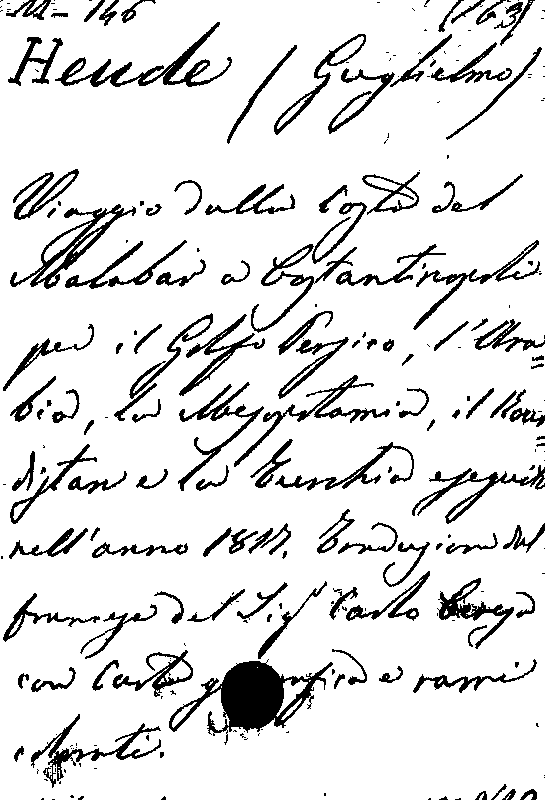 M-146 (163)
Heude (Guglielmo)
Viaggio dalla Costa del
Malabar a Costantinopoli
per il Golfo Persico, l'Ara=
bia, la Mesopotamia, il Kour=
distan e la Turchia eseguito
nell'anno 1817. Traduzione dal
francese del Sig.r Carlo
con Carta g fica e rami
colorati.